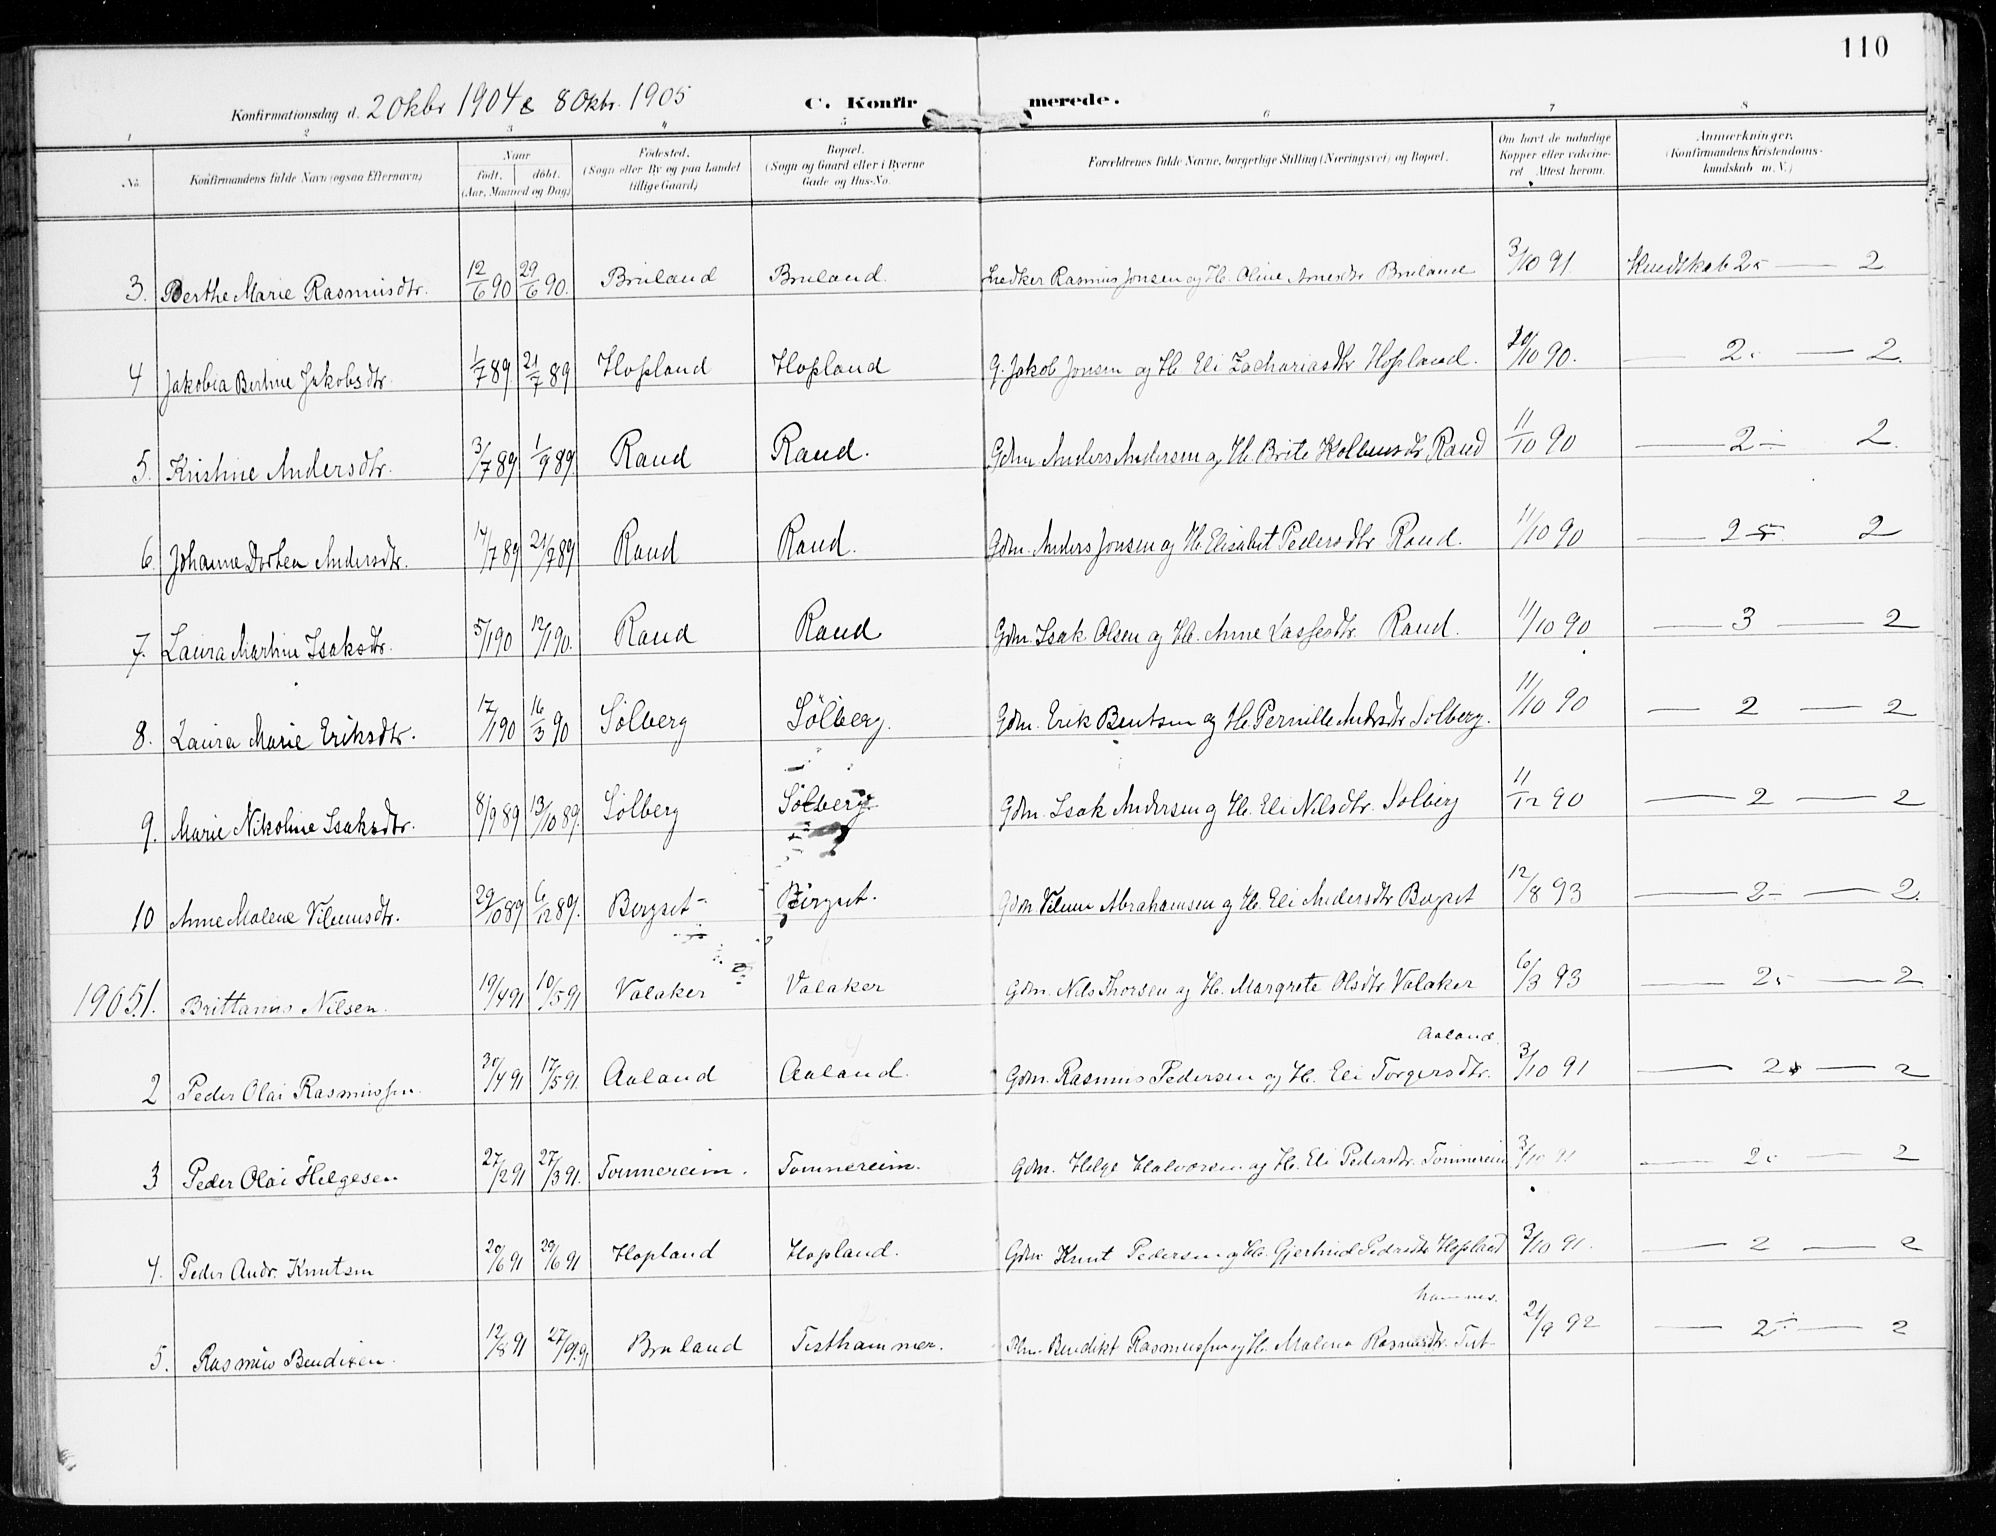 110
Konfirmationsdag d. 2 Okbr 1904 & 8 Okbr. 1905 C. Konfirmerede.
1 2 3 4 5 6 7 8
No. Konfirmandens fulde Navn (ogsaa Efternavn) Naar födt. döbt. (Aar, Maaned og Dag) Födested. (Sogn eller By og paa Landet tillige Gaard) Bopæl. (Sogn og Gaard eller i Byerne Gade og Hus-No. Forældrenes fulde Navne, borgerlige Stilling (Næringsvei) og Bopæl. Om havt de naturlige Kopper eller vakcineret. Attest herom. Anmærkninger. (Konfirmandens Kristendomskundskab m. V.)
3. Berthe Marie Rasmusdtr. 12/6 90 29/6 90. Bruland Bruland. Rasmus Jonsen og H. Oline Arnesdtr Bruland 3/10 91. Kundskab 2- — 2
4 Jakobia Bertine Jakobsdtr. 1/7 89 21/7 89 Hopland Hopland G. Jakob Jonsen og H. Eli Zachariasdtr Hopland. /10 90. — 2. — 2.
5. Kristine Andersdtr. 3/7 89 1/9 89 Raud Raud. Gdm Anders Andersen og H. Brite Kolbensdtr, Raud 11/10 90 — 2 - 2.
6. Johanne Dorthea Andersdtr. 14/7 89 21/7 89 Raud Raud. Gdm. Anders Jonsen og H. Elisabet Pedersdtr Raud. 11/10 90 — 2 - 2
7. Laura Martine Isaksdtr. 5/1 90 12/1 90. Raud Raud Gdm. Isak Olsen og H. Anne Lassesdtr. Raud. 11/10 90 — 3 — 2
8. Laura Marie Eriksdtr. 17/1 90 16/3 90 Sölberg Sölberg. Gdm. Erik Bentsen og H. Pernille Andrsdtr Solberg. 11/10 90 — 2 — 2
9. Marie Nikoline Isaksdtr. 8/9 89 13/10 89. Sölberg Sölberg Gdm. Isak Andersen og H. Eli Nilsdtr. Solberg 11/12 90 — 2 — 2
10 Anne Malene Vilumsdtr. 29/10 89 6/12 89. Bergset- Bergset. Gdm. Vilum Abrahamsen og H. Eli Andersdtr Bergset 12/8 93 — 2- — 2.
1905 1. Brittanus Nilsen. 19/4 91 10/5 91 Valaker Valaker Gdm. Nils Thorsen og H. Margrete Olsdtr Valaker 6/3 93 — 2. — 2.
Aaland.
2 Peder Olai Rasmussen. 30/4 91 17/5 91. Aaland Aaland. Gdm. Rasmus Pedersen og H. Eli Torgersdtr. 3/10 91 — 2 — 2
3 Peder Olai Helgesen 27/2 91 27/3 91. Tommereim. Tommereim. Gdm. Helge Halvorsen og H. Eli Pedersdtr. Tommereim 3/10 91 — 2. — 2
4. Peder Andr. Knutsen 20/6 91 29/6 91 Hopland Hopland. Gdm Knut Pedersen og H. Gjertrud Pedersdtr Hopland 3/10 91. — 2 — 2
hammer.
5. Rasmus Bendixen. 12/8 91 27/9 91 Bruland Tisthammer. Benedikt Rasmussen og H. Malena Rasmusdtr. Tist- 21/9 92 — 2- — 2